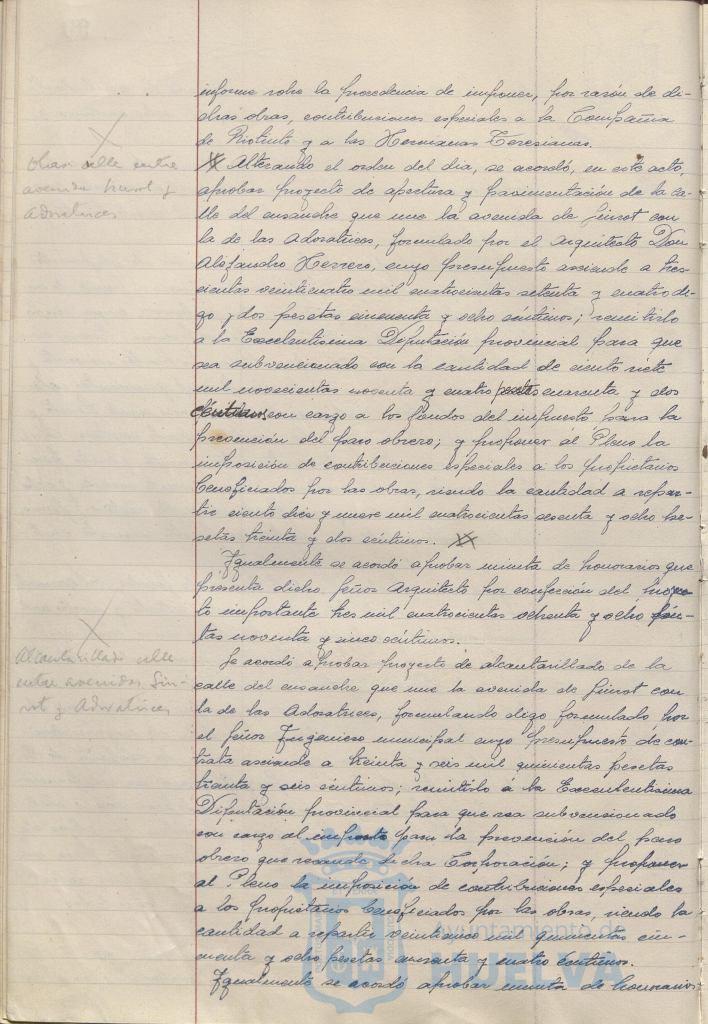 informe sobre la procedencia de imponer, por razón de di-
chas obras, contribuciones especiales a la Compañia
de Riotinto y a las Hermanas Teresianas.
Alterando el orden del dia, se acordó, en este acto,
aprobar proyecto de apertura y pavimentación de la ca-
Obras calle entre
avenida Guirot y
Adoratrices
lle del ensanche que une la avenida de Guirot con
la de las Adoratrices, formulado por el Arquitecto Don
Alejandro Herrero, cuyo presupuesto asciende a tres-
cientas veinticuatro mil cuatrocientas setenta y cuatro di-
go y dos pesetas cincuenta y ocho céntimos; remitirlo
a la Excelentisima Diputación provincial para que
sea subvencionado con la cantidad de ciento siete
mil novecientas noventa y cuatro pesetas cuarenta y dos
céntimos, con cargo a los fondos del impuesto para la
prevención del paro obrero; y proponer al Pleno la
imposición de contribuciones especiales a los propietarios
beneficiados por las obras, siendo la cantidad a repar-
tir ciento diez y nueve mil cuatrocientas sesenta y ocho pe-
setas treinta y dos céntimos.
Igualmente se acordó aprobar minuta de honorarios que
presenta dicho Señor Arquitecto por confección del proyec-
to importante tres mil cuatrocientas ochenta y ocho pese-
tas noventa y cinco céntimos.
Alcantarillado calle
entre avenidas Gui-
rot y Adoratrices
Se acordó aprobar proyecto de alcantarillado de la
calle del ensanche que une la avenida de Guirot con
la de las Adoratrices, formulando digo formulado por
el Señor Ingeniero municipal cuyo presupuesto de con-
trata asciende a treinta y seis mil quinientas pesetas
treinta y seis céntimos; remitirlo a la Excelentisima
Diputación provincial para que sea subvencionado
con cargo al impuesto para la prevención del paro
obrero que recauda dicha Corporación; y proponer
al Pleno la imposición de contribuciones especiales
a los propietarios beneficiados por las obras, siendo la
cantidad a repartir veinticinco mil quinientas cin-
cuenta y ocho pesetas cuarenta y cuatro céntimos.
Igualmente se acordó aprobar minuta de honorarios
ayuntamiento de
HUELVA